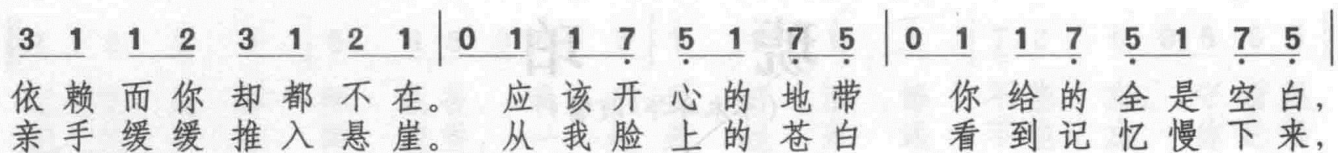 3 1 1 2 3 1 2 1 | 0 1 1 7̣ 5̣ 1 7̣ 5̣ | 0 1 1 7̣ 5̣ 1 7̣ 5̣ |
依赖而你却都不在。 应该开心的地带 你给的全是空白,
亲手缓缓推入悬崖。 从我脸上的苍白 看到记忆慢下来,